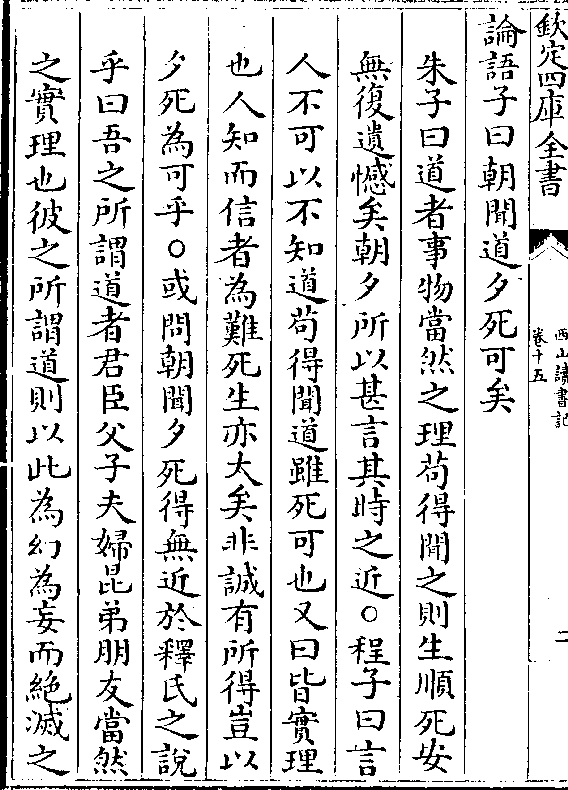 欽定四庫全書
西山讀書記
卷十五
二
論語子曰朝聞道夕死可矣
朱子曰道者事物當然之理苟得聞之則生順死安
無復遺憾矣朝夕所以甚言其時之近○程子曰言
人不可以不知道苟得聞道雖死可也又曰皆實理
也人知而信者為難死生亦大矣非誠有所得豈以
夕死為可乎○或問朝聞夕死得無近於釋氏之說
乎曰吾之所謂道者君臣父子夫婦昆弟朋友當然
之實理也彼之所謂道則以此為幻為妄而絶滅之